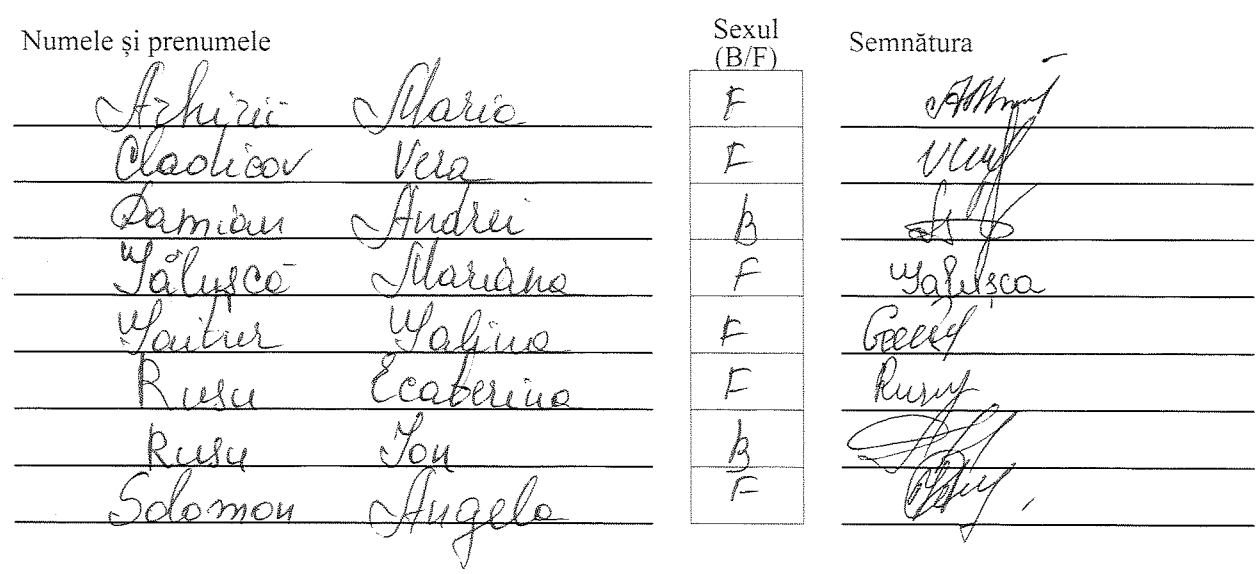 Numele și prenumele Sexul (B/F) Semnătura
Arhirii Maria F
Cladicov Vera F
Damian Andrei B
Gălușcă Mariana F Gălușca
Gaitur Galina F
Rusu Ecaterina F Rusu
Rusu Ion B
Solomon Angela F